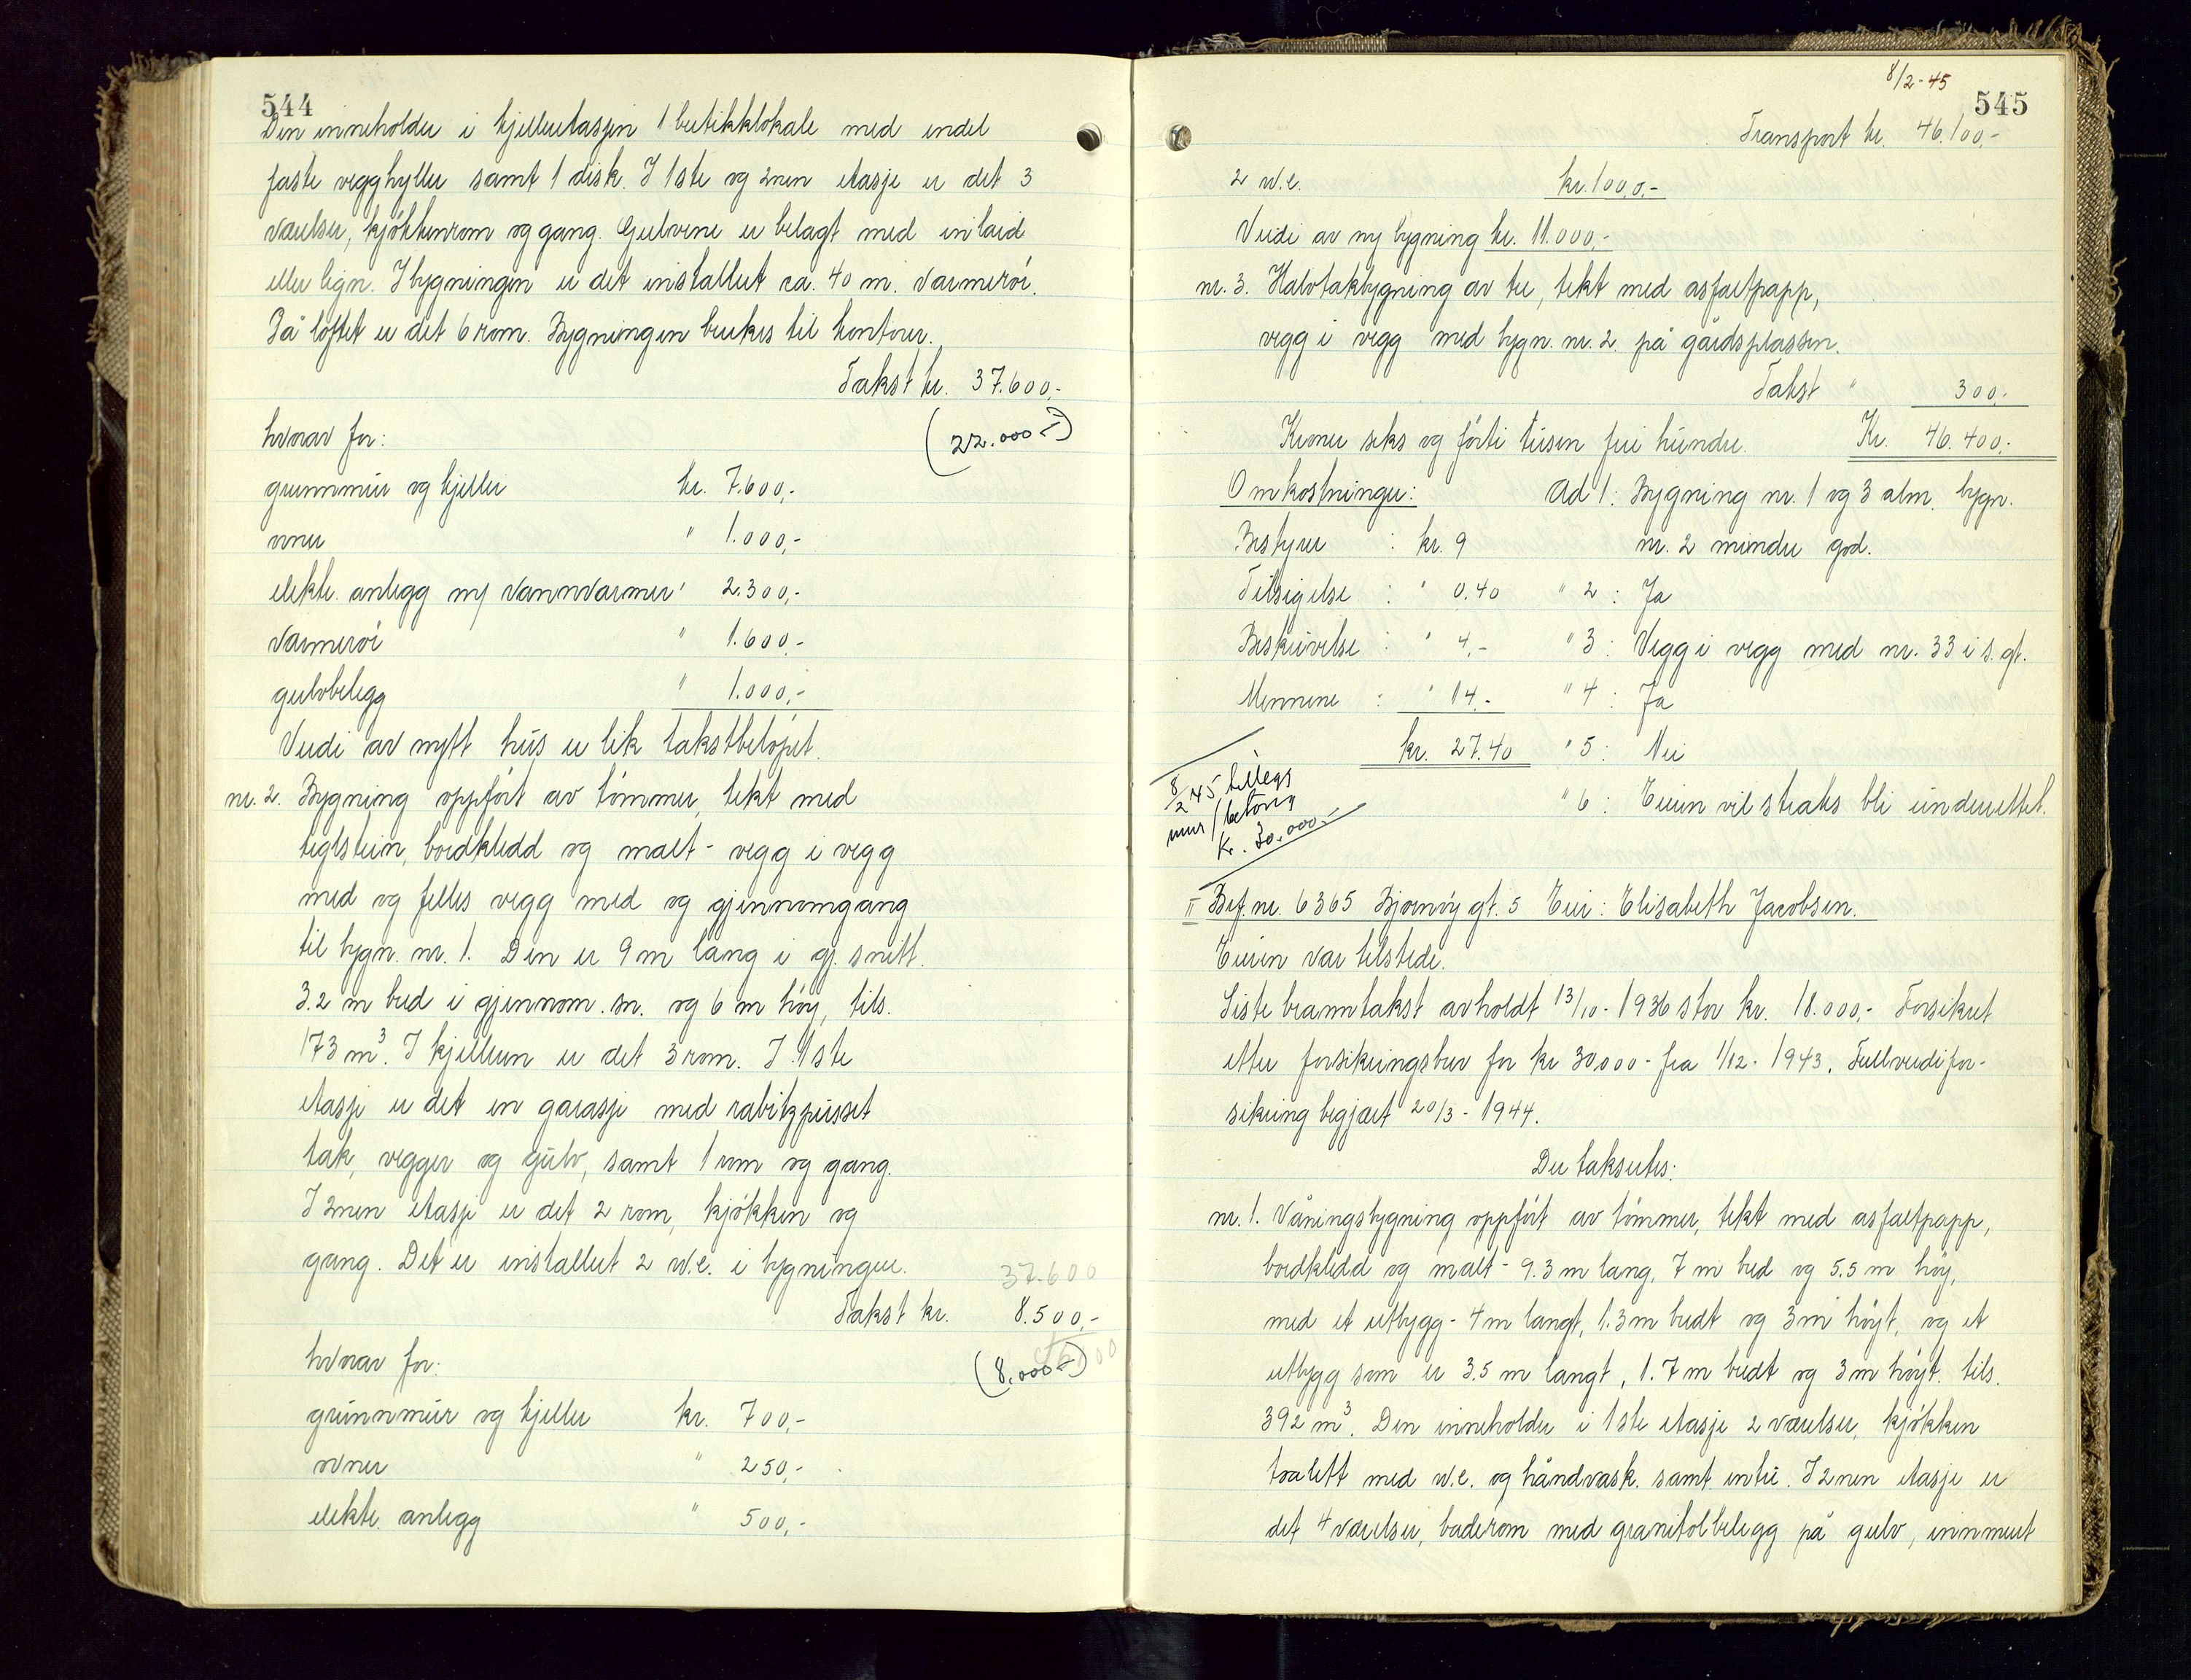 544
Den inneholder i kjelleretasjen 1 butikklokale med endel
faste vegghyller samt 1 disk. I 1ste og 2nen etasje er det 3
værelser, kjøkkenrom og gang. Gulvene er belagt med inlaid
eller lign. I bygningen er det installert ca. 40 m. varmerør.
På loftet er det 6 rom. Bygningen brukes til kontorer.
Takst kr. 37.600,-
(22.000-)
hvorav for:
grunnmur og kjeller kr. 7.600,-
ovner " 1.000,-
elektr. anlegg m/ vannvarmer " 2.300,-
varmerør " 1.600,-
gulvbelegg " 1.000,-
Verdi av nytt hus er lik takstbeløpet.
nr. 2. Bygning oppført av tømmer, tekt med
teglstein, bordkledd og malt - vegg i vegg
med og felles vegg med og gjennomgang
til bygn. nr. 1. Den er 9 m lang i gj. snitt.
3.2 m bred i gjennom.sn. og 6 m høy, tils.
173 m³. I kjelleren er det 3 rom. I 1ste
etasje er det en garasje med rabitzpusset
tak, vegger og gulv, samt 1 rom og gang.
I 2nen etasje er det 2 rom, kjøkken og
gang. Det er installert 2 w.c. i bygningen.
37.600
Takst kr. 8.500,-
(8.000-)
hvorav for:
grunnmur og kjeller kr. 700,-
ovner " 250,-
elektr. anlegg " 500,-
8/2-45
545
Transport kr. 46.100,-
2 w.c. kr. 1000,-
Verdi av ny bygning kr. 11.000,-
nr. 3. Halvtakbygning av tre, tekt med asfaltpapp,
vegg i vegg med bygn. nr. 2 på gårdsplassen.
Takst " 300,-
Kroner seks og førti tusen fire hundre. Kr. 46.400,-
Omkostninger: Ad 1: Bygning nr. 1 og 3 alm. bygn.
Bestyrer : kr. 9 nr. 2 mindre god.
Tilsigelse : " 0.40 " 2 : Ja
Beskrivelse : " 4,- " 3 : Vegg i vegg med nr. 33 i s. gt.
Mennene : " 14.- " 4 : Ja
kr. 27.40 " 5 : Nei
8/2 45 tillegs
mur/betong
Kr. 30.000.-
" 6 : Eieren vil straks bli underrettet.
II Brf. nr. 6365 Bjørnøygt. 5 Eier: Elisabeth Jacobsen.
Eieren var tilstede.
Siste branntakst avholdt 13/10 - 1936 stor kr. 18.000,- Forsikret
etter forsikringsbrev for kr 30000- fra 1/12 - 1943. Fullverdifor-
sikring begjært 20/3 - 1944.
Der takseres:
nr. 1. Våningsbygning oppført av tømmer, tekt med asfaltpapp,
bordkledd og malt - 9.3 m lang, 7 m bred og 5.5 m høy,
med et utbygg - 4 m langt, 1.3 m bredt og 3 m høyt, og et
utbygg som er 3.5 m langt, 1.7 m bredt og 3 m høyt. tils.
392 m³. Den inneholder i 1ste etasje 2 værelser, kjøkken
toalett med w.c. og håndvask. samt entré. I 2nen etasje er
det 4 værelser, baderom med granitolbelegg på gulv, innmurt